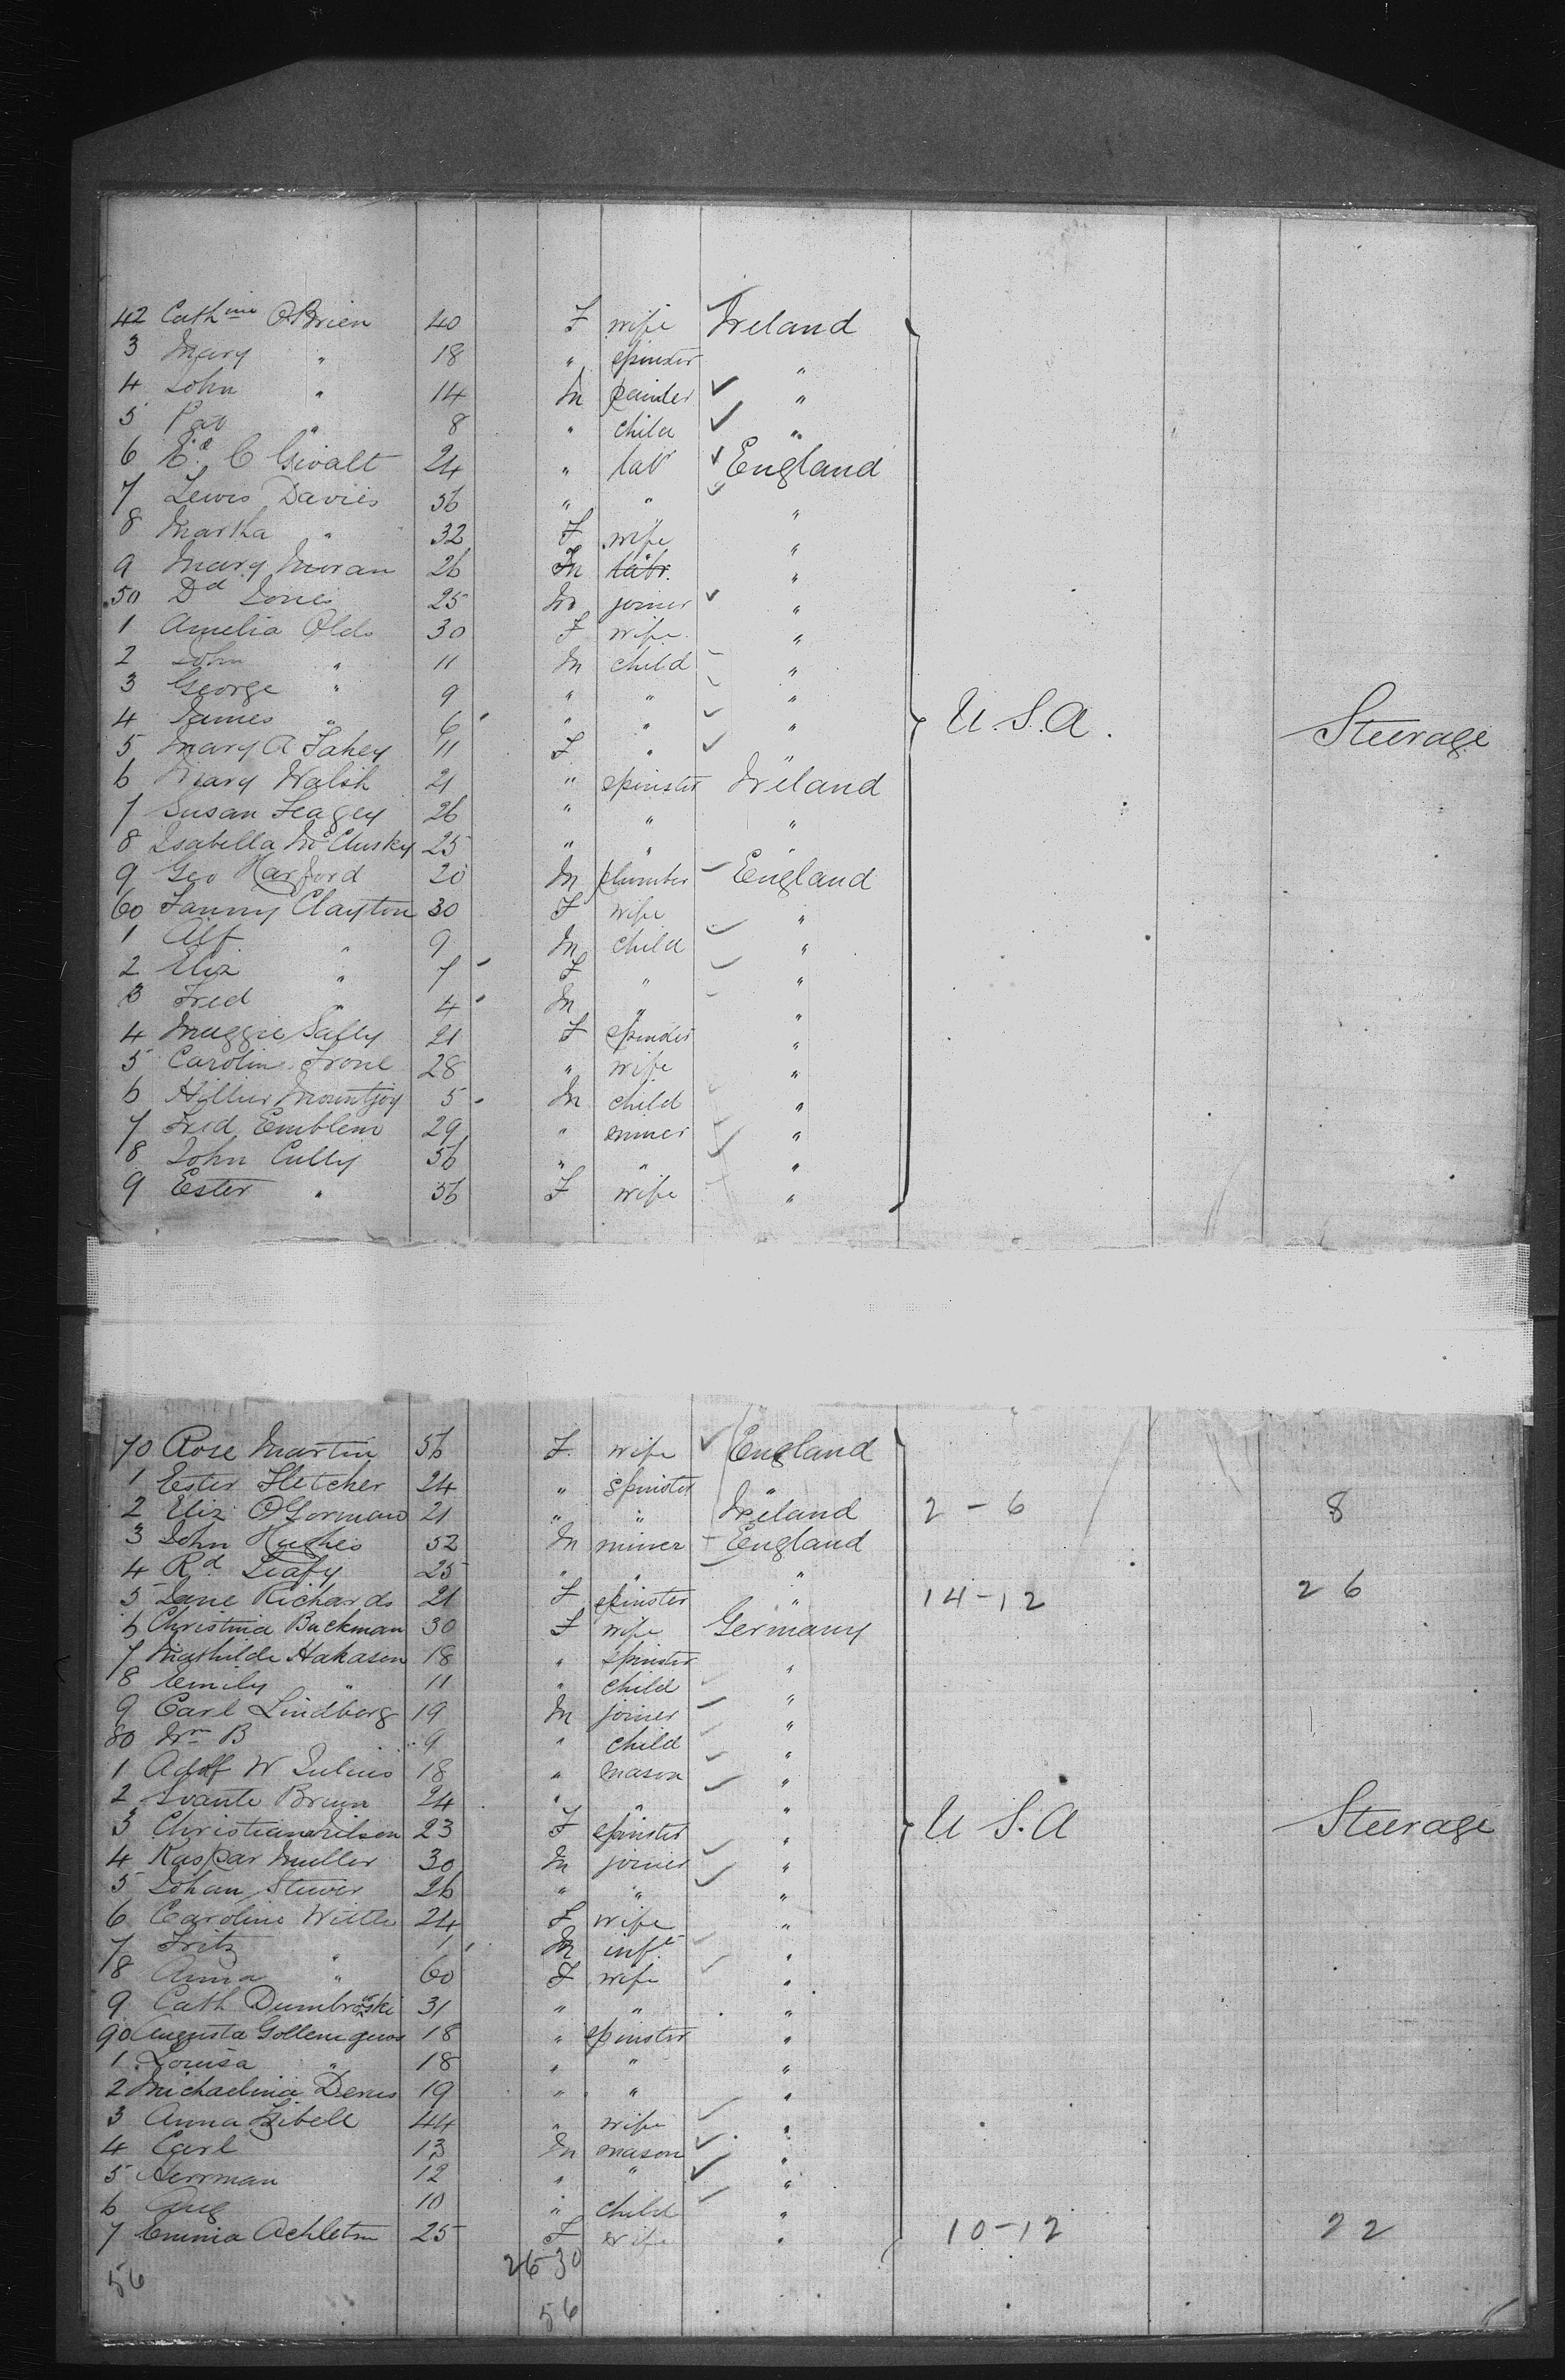 42 Cathine O'Brien 40 F wife Ireland
3 Mary " 18 " spinster "
4 John " 14 M painter "
5 Pat " 8 " child "
6 24 " labr England
7 Lewis Davies 36 " " "
8 Martha " 32 F wife "
9 Mary Moran 26 labr "
50 Dd Jones 25 M joiner "
1 Amelia Olds 30 F wife "
2 John " 11 M child "
3 George " 9 " " "
4 James " 6 " " "
5 Mary A Fahey 11 F " " U.S.A. Steerage
6 Mary Walsh 21 " spinster Ireland
7 Susan Feagey 26 " " "
8 Isabella McClusky 25 " " "
9 Geo Harford 20 M plumber England
60 Fanny Clayton 30 F wife "
1 Alf " 9 M child "
2 Eliz " 7 F " "
3 Fred " 4 M " "
4 Maggie Sally 21 F spinster "
5 Caroline 28 " wife "
6 Mountjoy 5 M child "
7 Fred Emblem 29 " miner "
8 John Cully 36 " " "
9 Ester " 36 F wife "
70 Rose Martin 36 F. wife England
1 Ester Fletcher 24 " spinster "
2 Eliz O'Gorman 21 " " Ireland 2-6 8
3 John Hughes 52 M miner England
4 Rd Leafy 25 " " "
5 Jane Richards 21 F spinster " 14-12 26
6 Christina Buckman 30 F wife Germany
7 Mathilde Hakason 18 " spinster "
8 Emily " 11 " child "
9 Carl Lindborg 19 M joiner "
80 Wm B 9 " child "
1 Adolf W Julius 18 " mason "
2 Svante Bruun 24 " " "
3 Christiana Nilson 23 F spinster " U S.A Steerage
4 Kaspar Muller 30 M joiner "
5 Johan 26 " " "
6 Caroline Wittle 24 F wife "
7 Fritz " 1 M inft "
8 Anna " 60 F wife "
9 Cath Dumbrowski 31 " " "
90 Augusta 18 " spinster "
1 Louisa " 18 " " "
2 Michaelina Derus 19 " " "
3 Anna Zibell 44 " wife "
4 Carl 13 M mason "
5 Herrman 12 " " "
6 Aug 10 " child "
7 Emma 25 F wife " 10-12 22
26 30
56
56